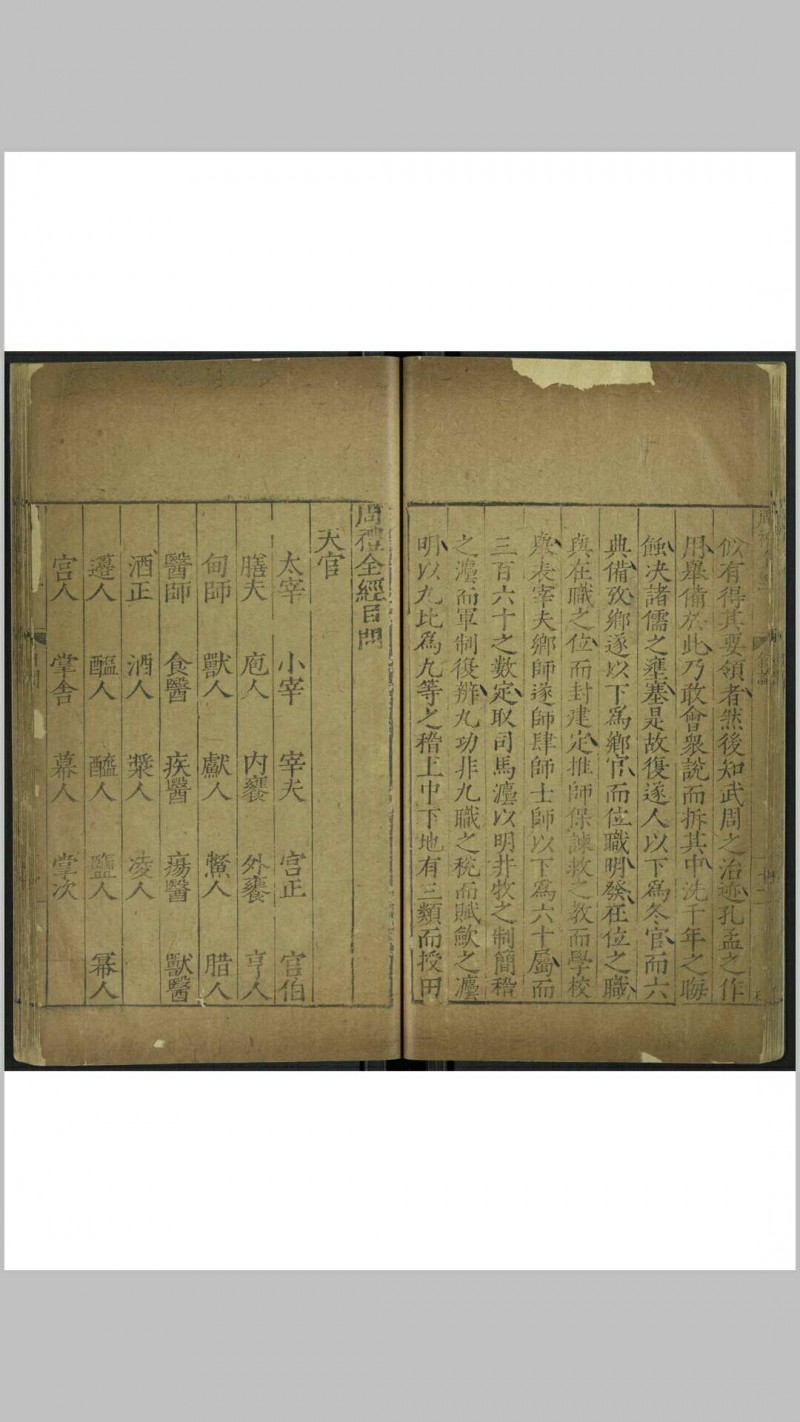 似有得其要領者然後知武周之治迹孔孟之作
用舉備於此乃敢會衆說而折其中洗千年之晦
蝕决諸儒之壅塞是故復遂人以下爲冬官而六
典備攷鄉遂以下爲鄉官而位職明發在位之職
與在職之位而封建定推師保諫救之教而學校
興表宰夫鄉師遂師肆師士師以下爲六十屬而
三百六十之數定取司馬灋以明井牧之制簡稽
之灋而軍制復辨九功非九職之稅而賦歛之灋
明以九比爲九等之稽上中下地有三類而授田
周禮全經目
天官
太宰 小宰 宰夫 宫正 宫伯
膳夫 庖人 内饔 外饔 亨人
甸師 獸人 䱷人 鱉人 腊人
醫師 食醫 疾醫 瘍醫 獸醫
酒正 酒人 漿人 凌人
籩人 醢人 醯人 鹽人 冪人
宫人 掌舍 幕人 掌次